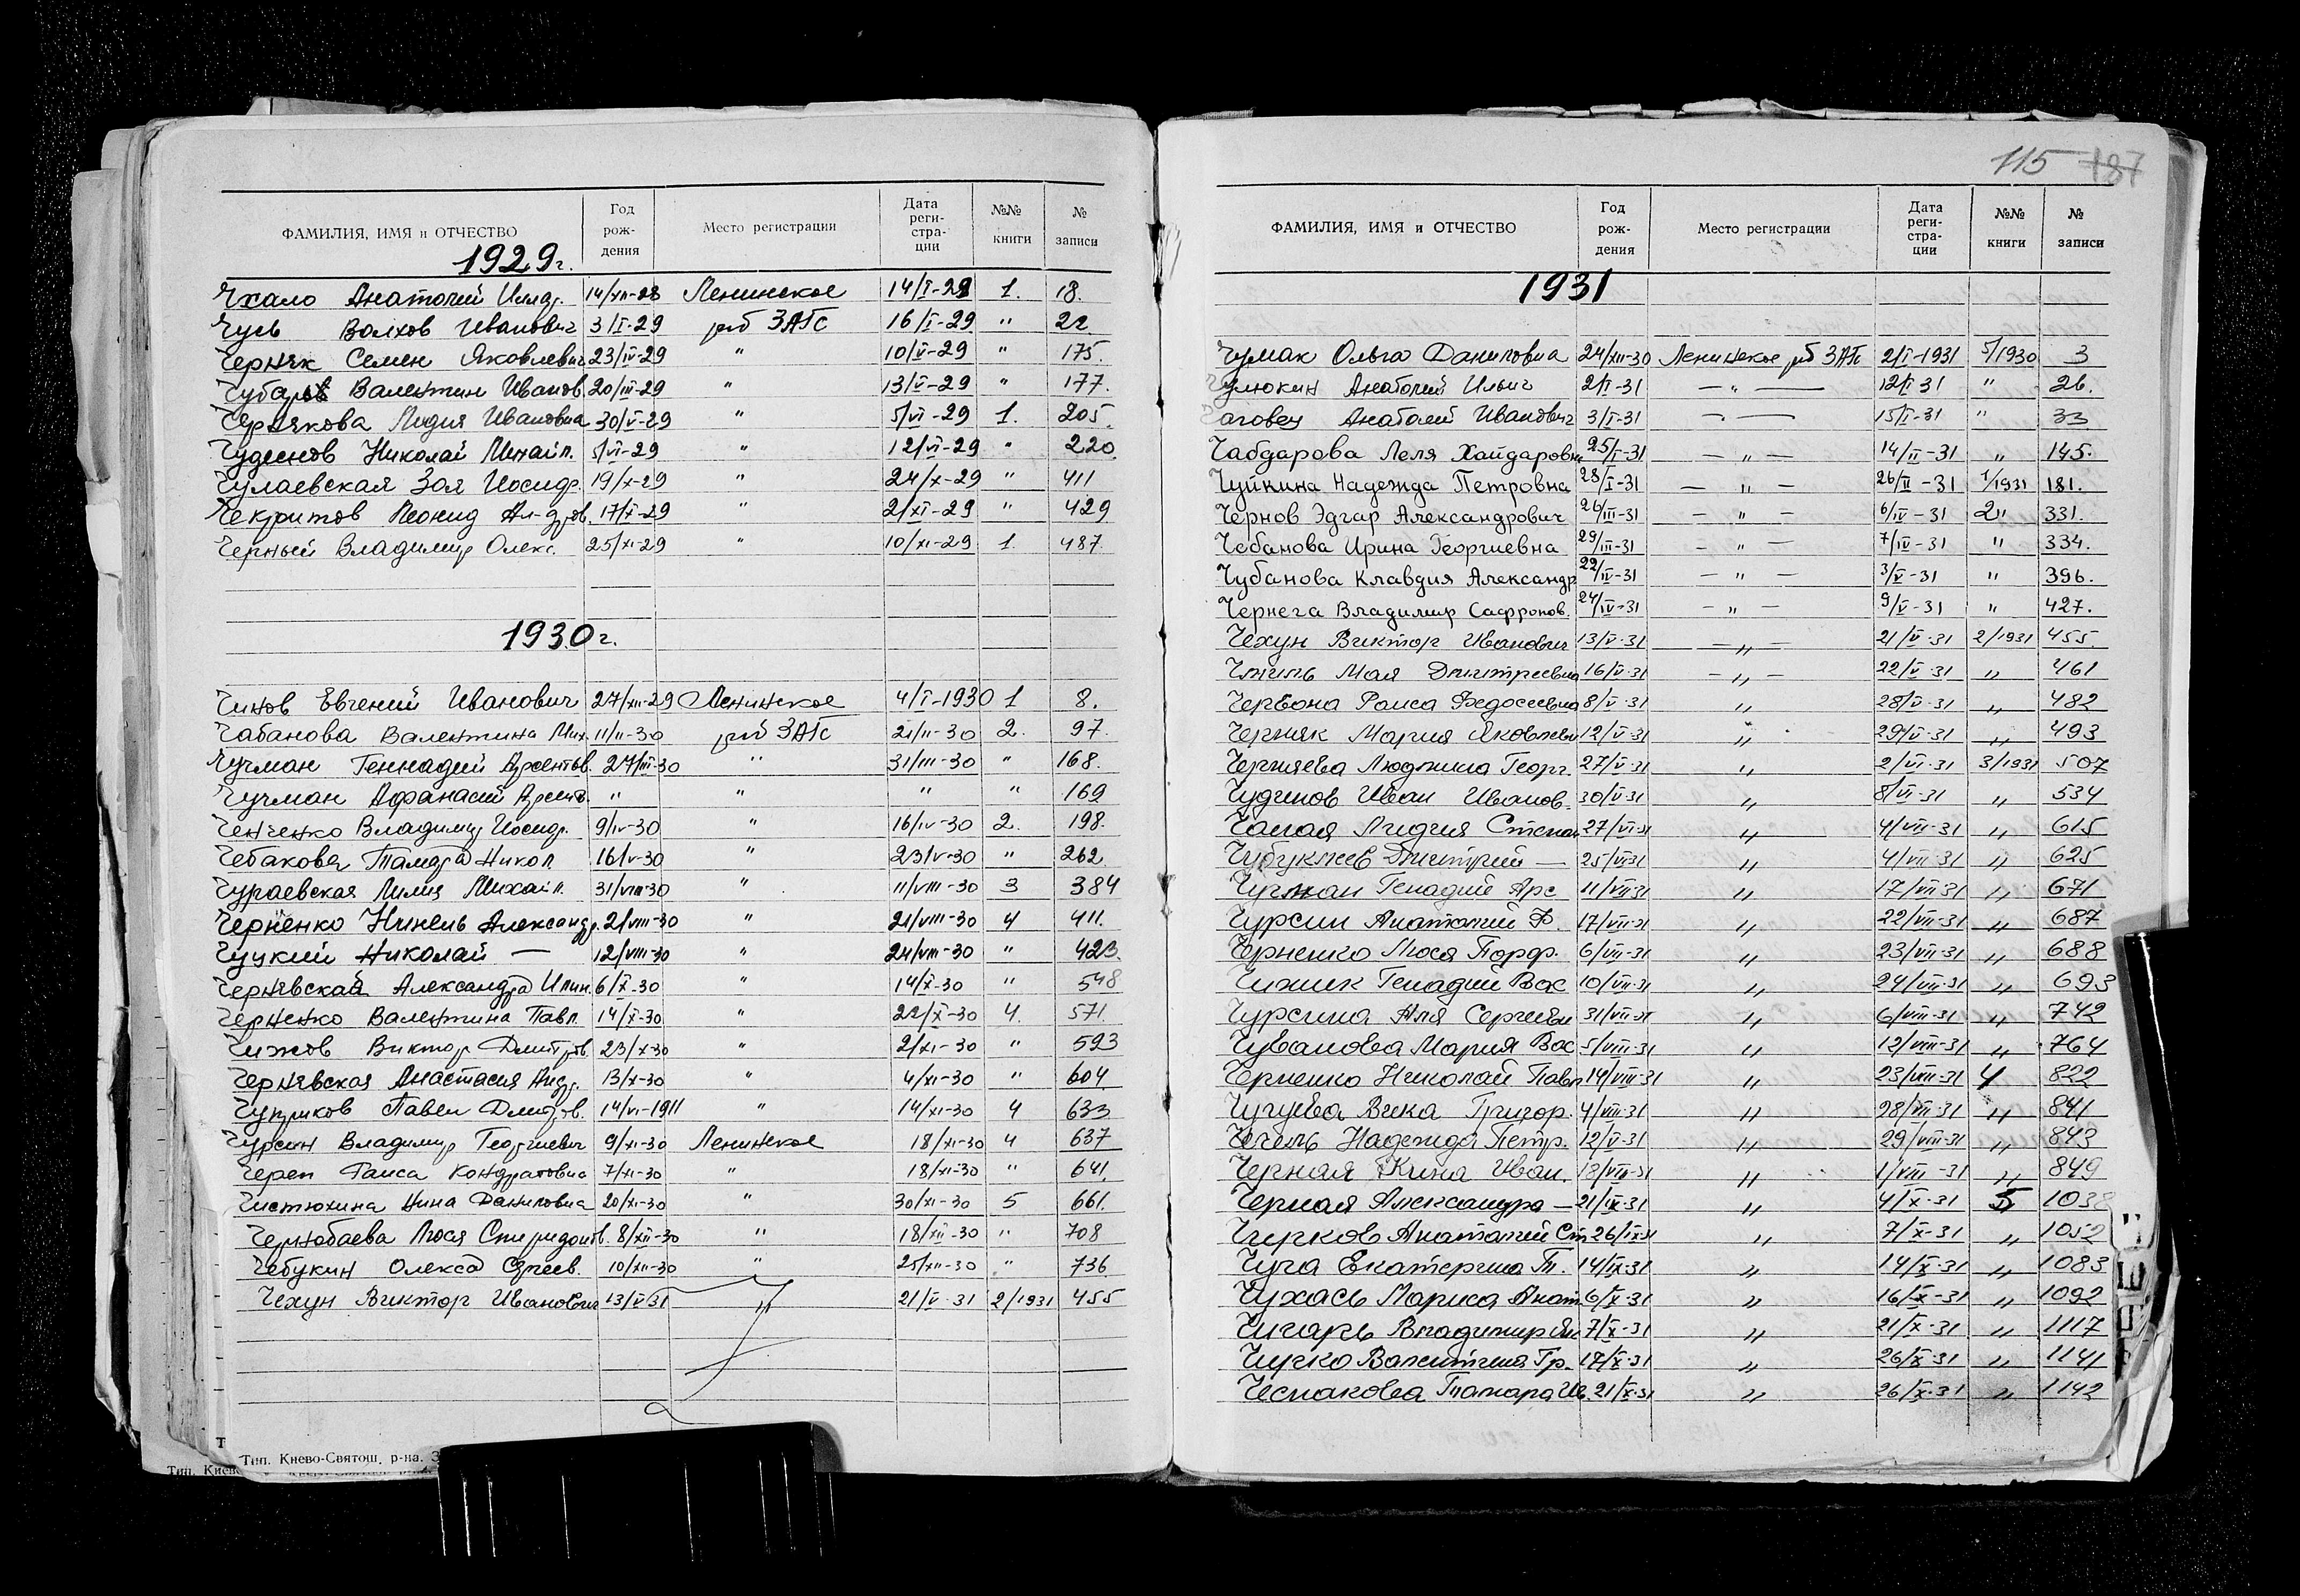 ФАМИЛИЯ, ИМЯ и ОТЧЕСТВО Год рождения Место регистрации Дата регистрации №№ книги № записи
1929г.
Чхало Анатолий 14/XII-28 Ленинское 14/I-29 1. 18.
Чусь Волхов Иванович 3/I-29 раб ЗАГС 16/I-29 " 22
Черняк Семен Яковлевич 23/IV-29 " 10/V-29 " 175.
Чубаров Валентин Иванов. 20/III-29 " 13/V-29 " 177.
Чернякова Лидия Ивановна 30/V-29 " 5/VI-29 1. 205.
Чудинов Николай Михайл. 5/VI-29 " 12/VI-29 " 220
Чулаевская Зоя Иосиф. 19/X-29 " 24/X-29 " 411
Чекритов Леонид 17/X-29 " 2/XI-29 " 429
Черный Владимир Олекс. 25/XI-29 " 10/XI-29 1. 487
1930г.
Чинов Евгений Иванович 27/XII-29 Ленинское 4/I-1930 1 8.
Чабанова Валентина Мих. 11/II-30 раб ЗАГС 21/II-30 2. 97.
Чучман Геннадий Арсентьв. 27/III-30 " 31/III-30 " 168.
Чучман Афанасий Арсент. " " " " 169
Ченченко Владимир Иосиф. 9/IV-30 " 16/IV-30 2. 198.
Чебакова Тамара Никол. 16/V-30 " 23/V-30 " 262
Чураевская Лилия Михайл. 31/VIII-30 " 11/VIII-30 3 384
Черненко Нинель Александр. 2/VIII-30 " 21/VIII-30 4 411.
Чуцкий Николай — 12/VIII-30 " 24/VIII-30 " 423.
Чернявская Александра Илин. 6/X-30 " 14/X-30 " 548
Черненко Валентина Павл. 14/X-30 " 22/X-30 4. 571.
Чижов Виктор Дмитров. 23/X-30 " 2/XI-30 " 593
Чернявская Анастасия Андр. 13/X-30 " 4/XI-30 " 604
Чуприков Павел Дмитров. 14/VI-1911 " 14/XI-30 4 633
Чурсин Владимир Георгиевич 9/XI-30 Ленинское 18/XI-30 4 637
Череп Раиса Кондратовна 7/XI-30 " 18/XI-30 " 641.
Чистюхина Нина Даниловна 20/XI-30 " 30/XI-30 5 661.
Чернобаева Люся Спиридонов. 8/XII-30 " 18/XII-30 " 708
Чебукин Олекса Сергеев. 10/XII-30 " 25/XII-30 " 736
Чехун Виктор Иванович 13/V 31 " 21/V-31 2/1931 455
Тип. Киево-Святош. р-на. З
Тип. Киев
115 187
ФАМИЛИЯ, ИМЯ и ОТЧЕСТВО Год рождения Место регистрации Дата регистрации №№ книги № записи
1931
Чумак Ольга Даниловна 24/XII-30 Ленинское раб ЗАГс 2/I-1931 5/1930 3
Чулюкин Анатолий Ильич 2/I-31 — " — 12/I 31 " 26.
Анатолий Иванович 3/I-31 — " — 15/I-31 " 33
Чабдарова Леля Хайдаровна 25/I-31 — " — 14/II-31 " 145.
Чуйкина Надежда Петровна 28/I-31 — " — 26/II-31 1/1931 181.
Чернов Эдгар Александрович 26/III-31 — " — 6/IV-31 2" 331.
Чебанова Ирина Георгиевна 29/III-31 — " — 7/IV-31 " 334.
Чубанова Клавдия Александр 22/IV-31 — " — 3/V-31 " 396.
Чернега Владимир Сафронов. 24/IV-31 — " — 9/V-31 " 427.
Чехун Виктор Иванович 13/V-31 — " — 21/V-31 2/1931 455
Мая Дмитриевна 16/V-31 — " — 22/V-31 " 461
Червона Раиса Федосеевна 8/V-31 " 28/V-31 " 482
Черняк Мария Яковлевн 12/V-31 " 29/V-31 " 493
Черняева Людмила Георг. 27/V-31 " 2/VI-31 3/1931 507
Чудинов Иван Иванов. 30/V-31 " 8/VI-31 " 534
Чалая Лидия Степан 27/VI-31 " 4/VII-31 " 615
Дмитрий — 25/VI31 " 4/VII-31 " 625
Чугман Генадий Арс 11/VII31 " 17/VII31 " 671
Чурсин Анатолий Ф. 17/VII-31 " 22/VII-31 " 687
Черненко Люся Порф. 6/VII-31 " 23/VII-31 " 688
Чижик Генадий Вас 10/VII-31 " 24/VII-31 " 693
Чурсина Аля Сергеевн 31/VII-31 " 6/VIII-31 " 742
Чуванова Мария Вас 5/VIII-31 " 12/VIII-31 " 764
Черненко Николай Павл 14/VIII-31 " 23/VIII-31 4 822
Чугуева Вика Григор. 4/VIII-31 " 28/VIII-31 " 841
Чечель Надежда Петр. 12/V-31 " 29/VIII-31 " 843
Черная Иван. 18/VIII-31 " 1/VIII-31 " 849
Черная Александра — 21/IX-31 " 4/X-31 5 1038
Чирков Анатолий Ст. 26/IX31 " 7/X-31 " 1052
Чуга Екатерина Т. 14/IX-31 " 14/X-31 " 1083
Чухась Мариса Анат 6/X-31 " 16/X-31 " 1092
Чигарь Владимир 7/X-31 " 21/X-31 " 1117
Чучко Валентина Гр. 17/X-31 " 26/X-31 " 1141
Чеснакова Тамара Ив. 21/X-31 " 26/X-31 " 1142